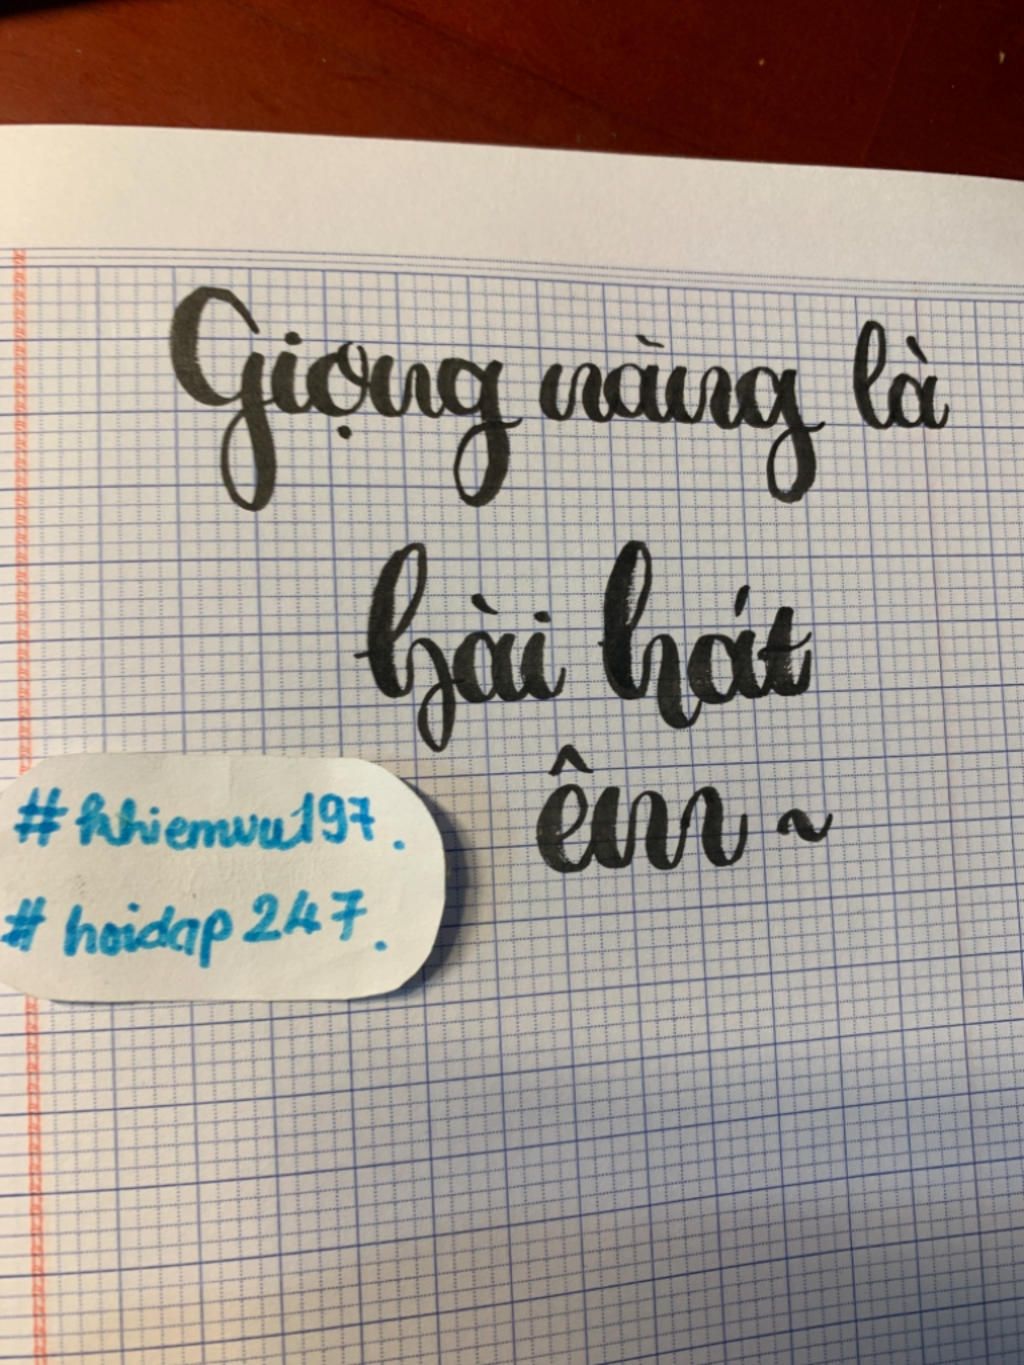 Giọng nàng là
bài hát
êm ~
#nhiemvu197.
#hoidap247.